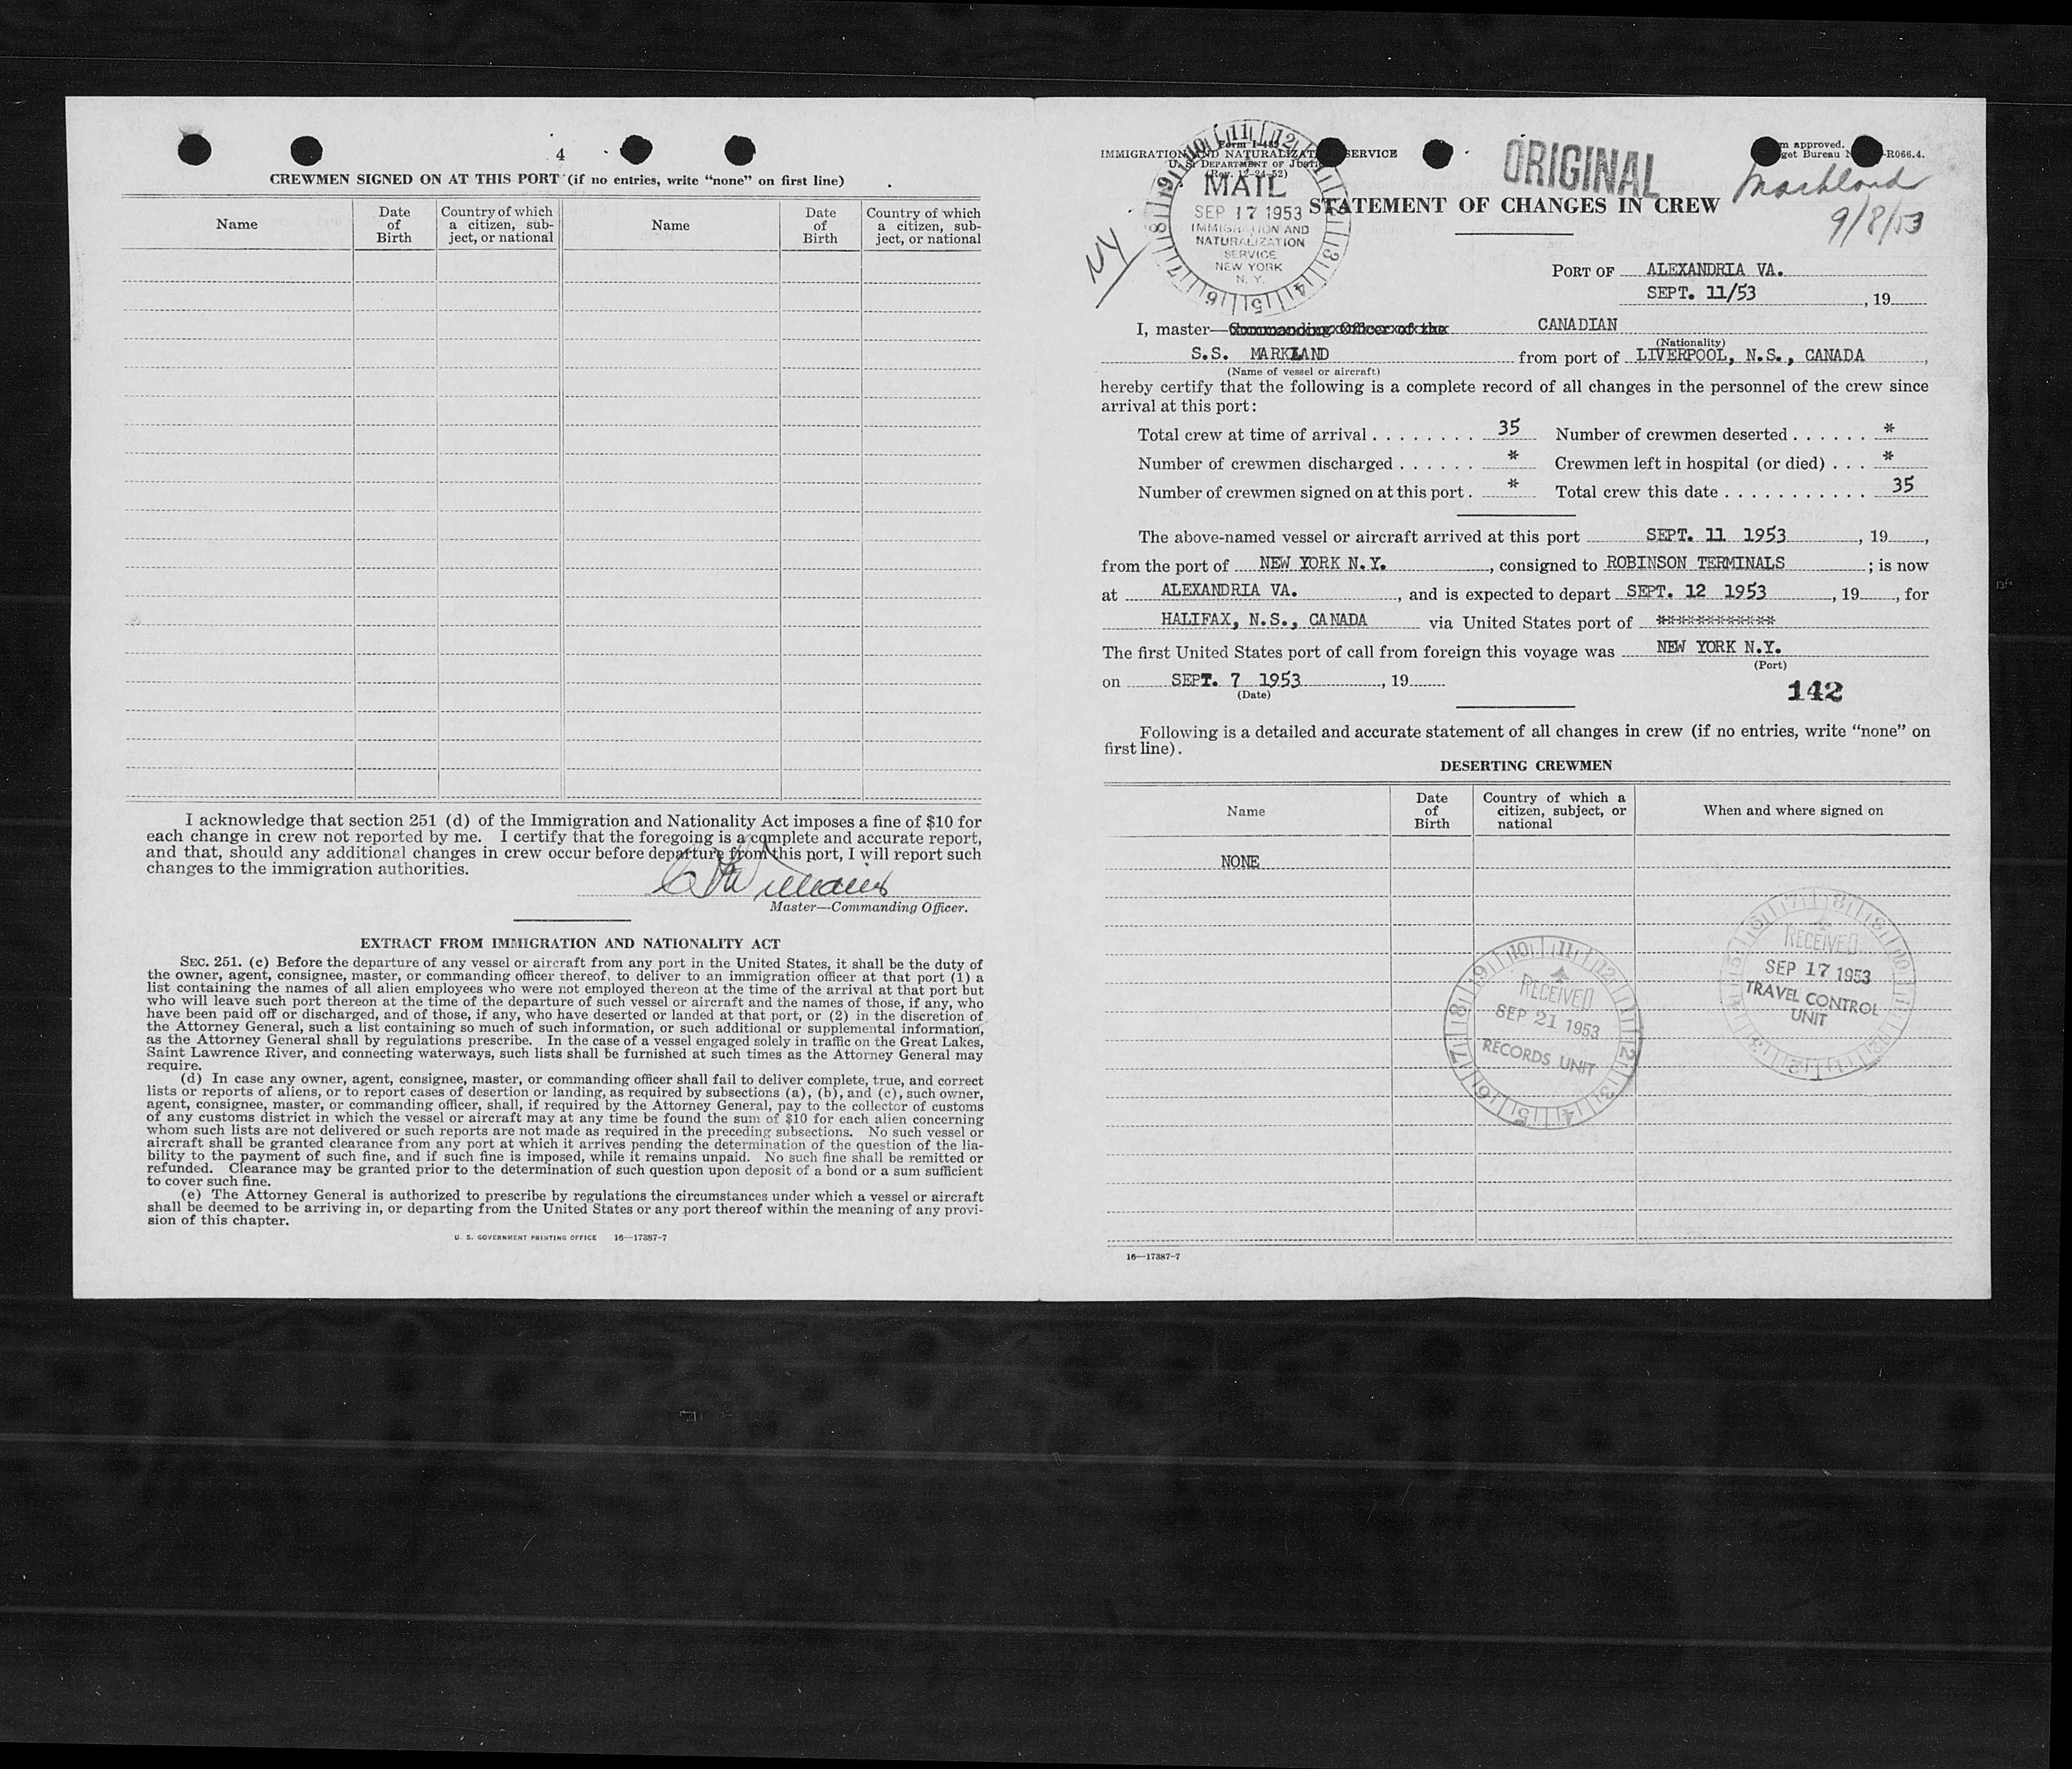 4
CREWMEN SIGNED ON AT THIS PORT (if no entries, write “none” on first line)
Name
Date of Birth
Country of which a citizen, subject, or national
Name
Date of Birth
Country of which a citizen, subject, or national
I acknowledge that section 251 (d) of the Immigration and Nationality Act imposes a fine of $10 for
each change in crew not reported by me. I certify that the foregoing is a complete and accurate report,
and that, should any additional changes in crew occur before departure from this port, I will report such
changes to the immigration authorities.
Williams
Master—Commanding Officer.
EXTRACT FROM IMMIGRATION AND NATIONALITY ACT
SEC. 251. (c) Before the departure of any vessel or aircraft from any port in the United States, it shall be the duty of
the owner, agent, consignee, master, or commanding officer thereof, to deliver to an immigration officer at that port (1) a
list containing the names of all alien employees who were not employed thereon at the time of the arrival at that port but
who will leave such port thereon at the time of the departure of such vessel or aircraft and the names of those, if any, who
have been paid off or discharged, and of those, if any, who have deserted or landed at that port, or (2) in the discretion of
the Attorney General, such a list containing so much of such information, or such additional or supplemental information,
as the Attorney General shall by regulations prescribe. In the case of a vessel engaged solely in traffic on the Great Lakes,
Saint Lawrence River, and connecting waterways, such lists shall be furnished at such times as the Attorney General may
require.
(d) In case any owner, agent, consignee, master, or commanding officer shall fail to deliver complete, true, and correct
lists or reports of aliens, or to report cases of desertion or landing, as required by subsections (a), (b), and (c), such owner,
agent, consignee, master, or commanding officer, shall, if required by the Attorney General, pay to the collector of customs
of any customs district in which the vessel or aircraft may at any time be found the sum of $10 for each alien concerning
whom such lists are not delivered or such reports are not made as required in the preceding subsections. No such vessel or
aircraft shall be granted clearance from any port at which it arrives pending the determination of the question of the lia-
bility to the payment of such fine, and if such fine is imposed, while it remains unpaid. No such fine shall be remitted or
refunded. Clearance may be granted prior to the determination of such question upon deposit of a bond or a sum sufficient
to cover such fine.
(e) The Attorney General is authorized to prescribe by regulations the circumstances under which a vessel or aircraft
shall be deemed to be arriving in, or departing from the United States or any port thereof within the meaning of any provi-
sion of this chapter.
U. S. GOVERNMENT PRINTING OFFICE 16—17387-7
IMMIGRATION AND NATURALIZATION SERVICE
U. S. DEPARTMENT OF JUSTICE
(Rev. 12-24-52)
MAIL
SEP 17 1953
IMMIGRATION AND
NATURALIZATION
SERVICE
NEW YORK
N. Y.
NY
ORIGINAL
approved.
get Bureau R066.4.
Markland
9/8/53
STATEMENT OF CHANGES IN CREW
PORT OF ALEXANDRIA VA.
SEPT. 11/53, 19
I, master—Commanding Officer of the CANADIAN
(Nationality)
S.S. MARKLAND from port of LIVERPOOL, N.S., CANADA,
(Name of vessel or aircraft)
hereby certify that the following is a complete record of all changes in the personnel of the crew since
arrival at this port:
Total crew at time of arrival . . . . . . . . 35 Number of crewmen deserted . . . . . . *
Number of crewmen discharged . . . . . . * Crewmen left in hospital (or died) . . . *
Number of crewmen signed on at this port . * Total crew this date . . . . . . . . . . . 35
The above-named vessel or aircraft arrived at this port SEPT. 11 1953, 19,
from the port of NEW YORK N.Y., consigned to ROBINSON TERMINALS; is now
at ALEXANDRIA VA., and is expected to depart SEPT. 12 1953, 19, for
HALIFAX, N.S., CANADA via United States port of ************
The first United States port of call from foreign this voyage was NEW YORK N.Y.
(Port)
on SEPT. 7 1953, 19
(Date)
142
Following is a detailed and accurate statement of all changes in crew (if no entries, write “none” on
first line).
DESERTING CREWMEN
Name
Date of Birth
Country of which a citizen, subject, or national
When and where signed on
NONE
RECEIVED
SEP 21 1953
RECORDS UNIT
RECEIVED
SEP 17 1953
TRAVEL CONTROL
UNIT
16—17387-7